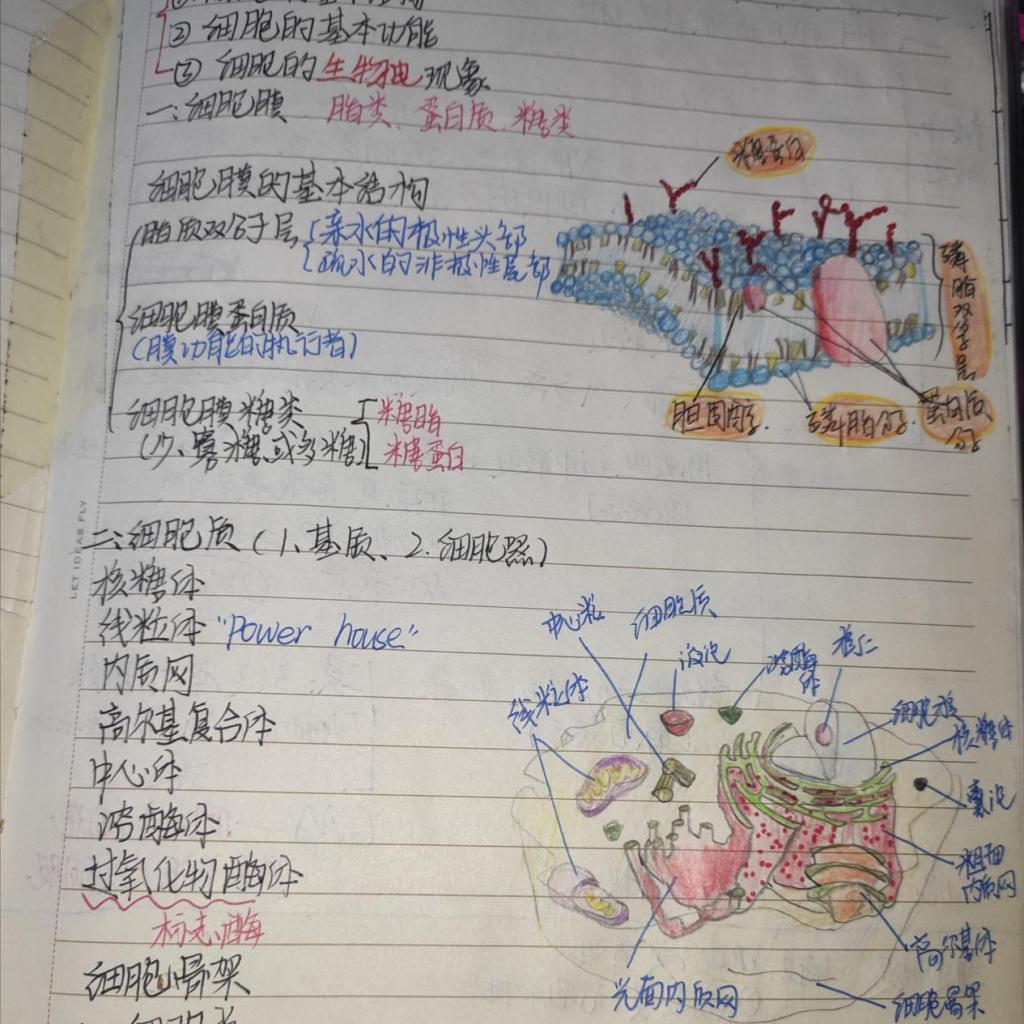 ② 细胞的基本功能
③ 细胞的生物电现象
一、细胞膜 脂类、蛋白质、糖类
糖蛋白
细胞膜的基本结构
脂质双分子层 亲水的极性头部
疏水的非极性尾部
磷脂双分子层
细胞膜蛋白质
(膜功能的执行者)
细胞膜糖类 糖脂
(少、寡糖或多糖) 糖蛋白
胆固醇 磷脂分子 蛋白质分子
二、细胞质(1、基质、2.细胞器)
LET IDEAS FLY
核糖体
线粒体 "Power house"
内质网
高尔基复合体
中心体
溶酶体
过氧化物酶体
标志酶
细胞骨架
中心粒
细胞质
液泡
溶酶体
核仁
线粒体
细胞核
核糖体
囊泡
粗面内质网
高尔基体
光面内质网